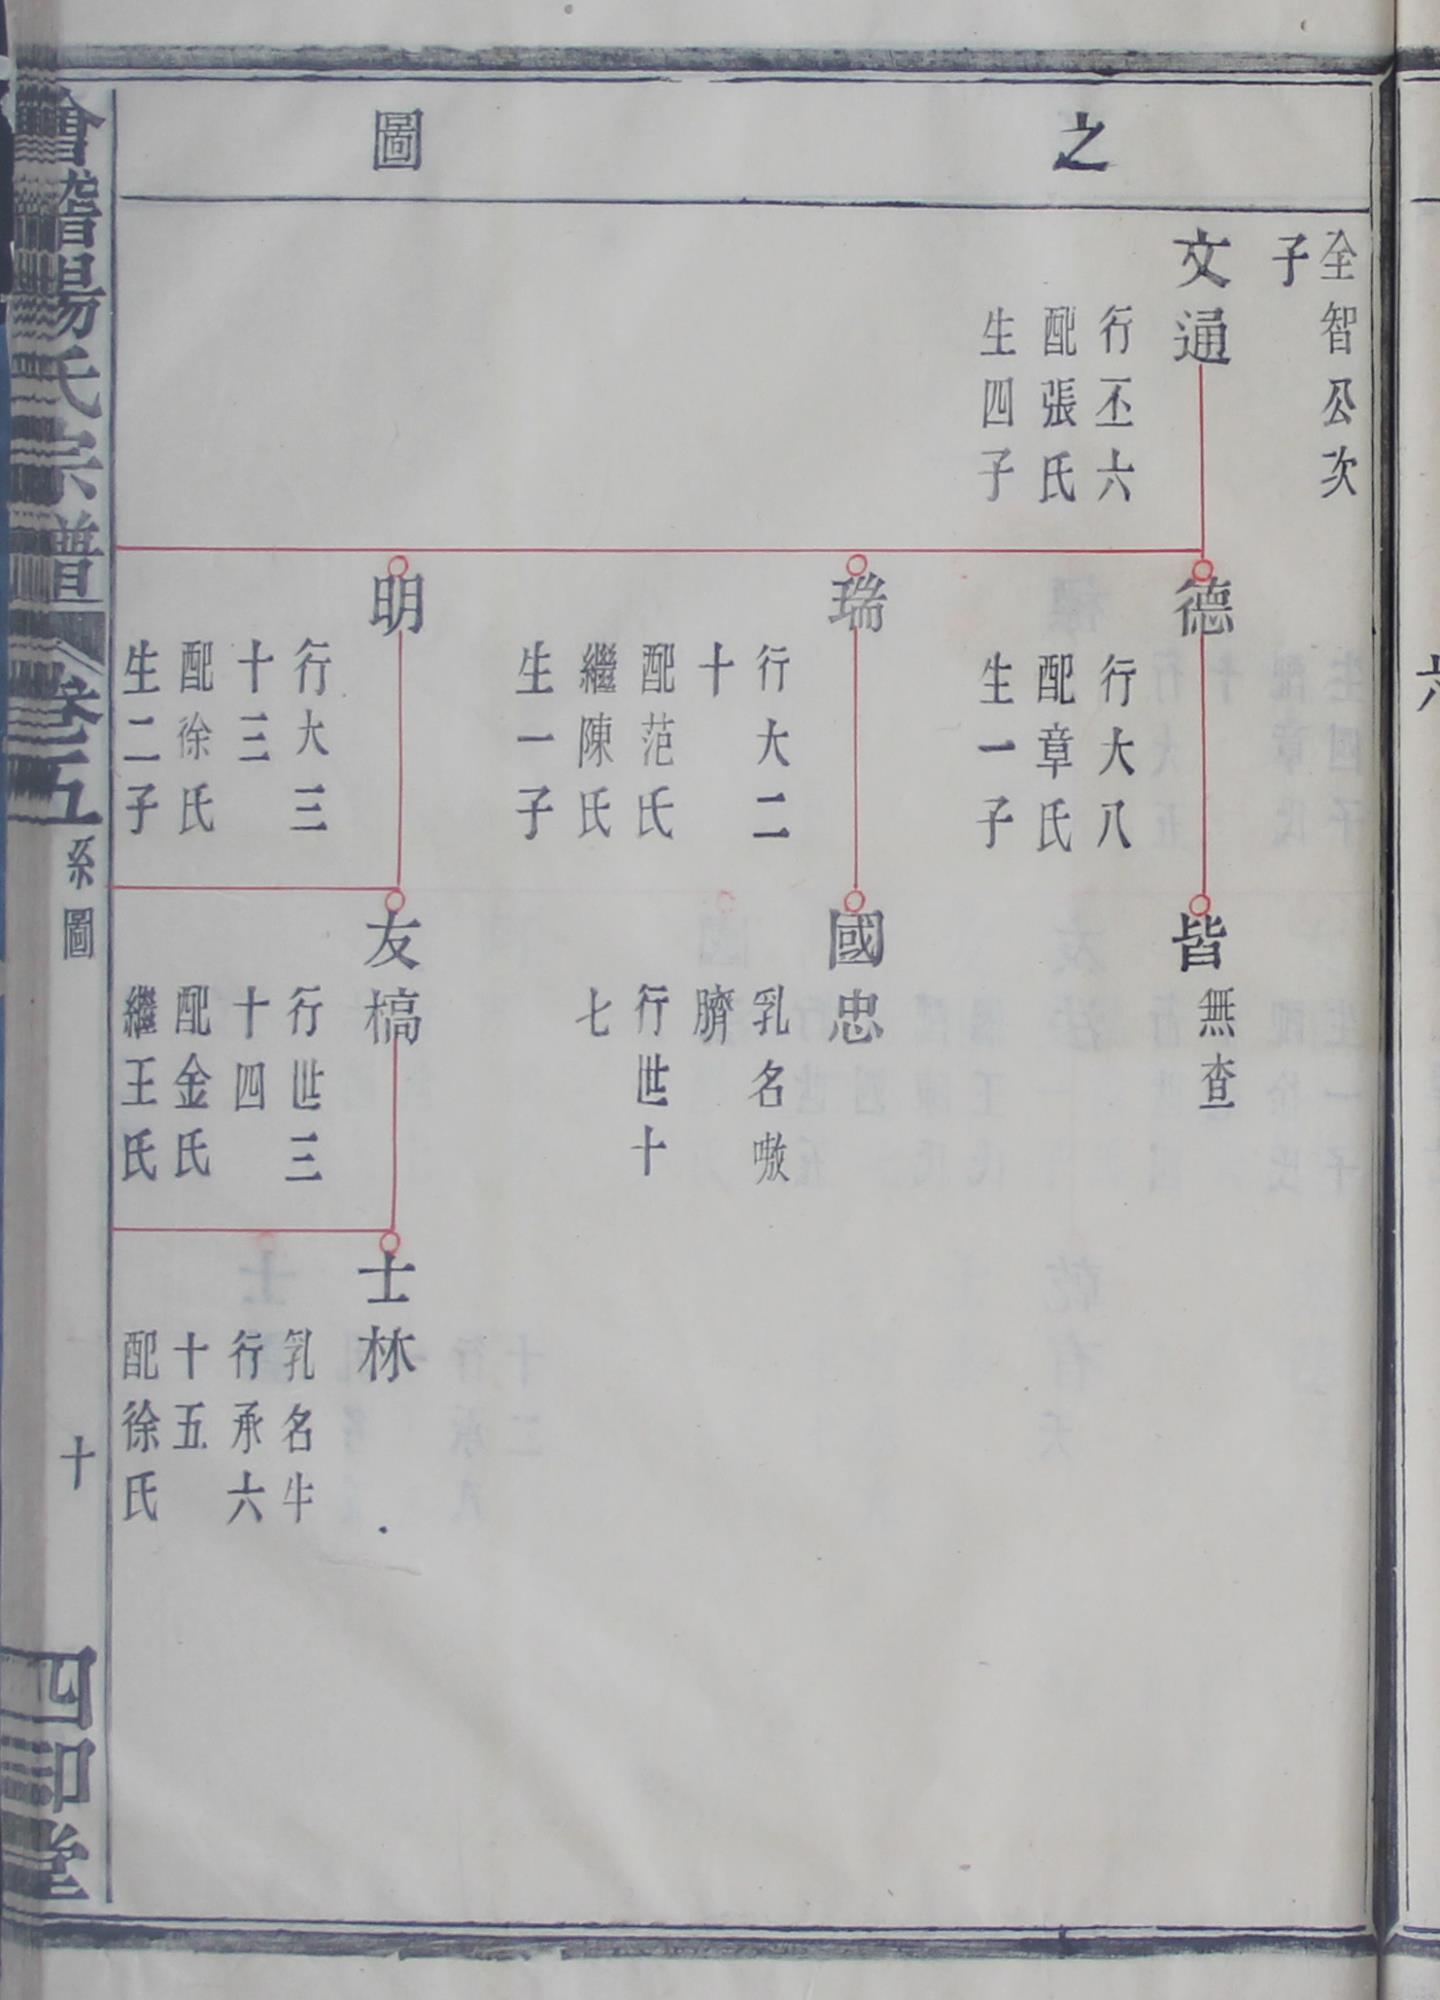 之
圖
全智公次
子
文通
行丕六
配張氏
生四子
德
行大八
配章氏
生一子
瑞
行大二
十
配范氏
繼陳氏
生一子
明
行大三
十三
配徐氏
生二子
皆
無查
國忠
乳名嗷
臍
行世十
七
友槁
行世三
十四
配金氏
繼王氏
士林
乳名牛
行承六
十五
配徐氏
會稽楊氏宗譜
卷五
系圖
十
四印堂
六